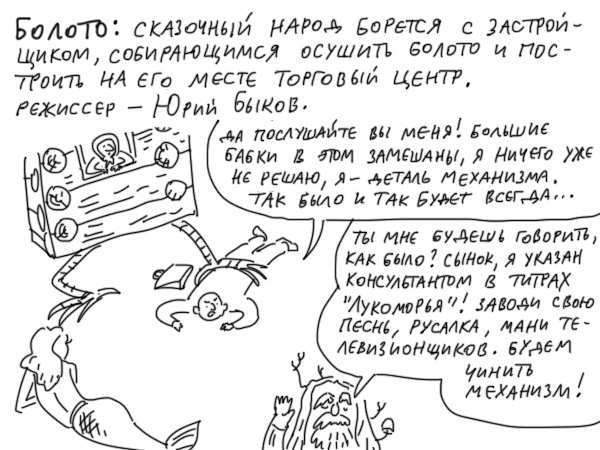 Болото: сказочный народ борется с застрой-
щиком, собирающимся осушить болото и пос-
троить на его месте торговый центр.
Режиссер – Юрий Быков.
Да послушайте вы меня! Большие
бабки в этом замешаны, я ничего уже
не решаю, я – деталь механизма.
Так было и так будет всегда...
Ты мне будешь говорить,
как было? Сынок, я указан
консультантом в титрах
"Лукоморья"! Заводи свою
песнь, русалка, мани те-
левизионщиков. Будем
чинить
механизм!